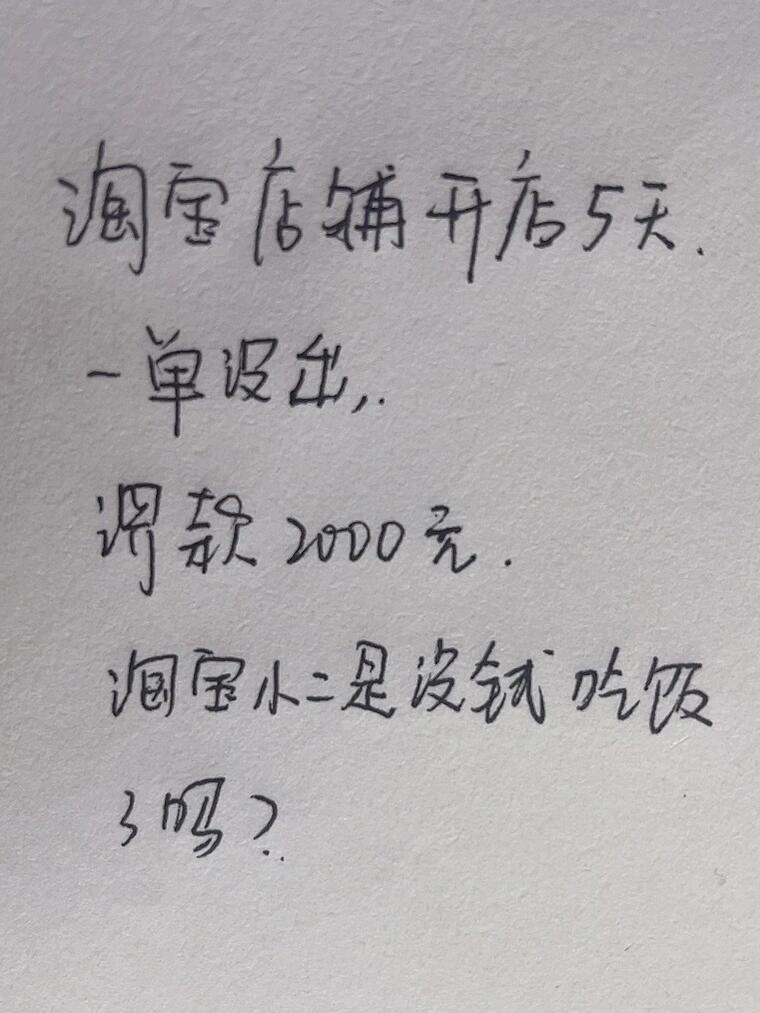 淘宝店铺开店5天.
一单没出,.
罚款2000元.
淘宝小二是没钱吃饭
了吗?